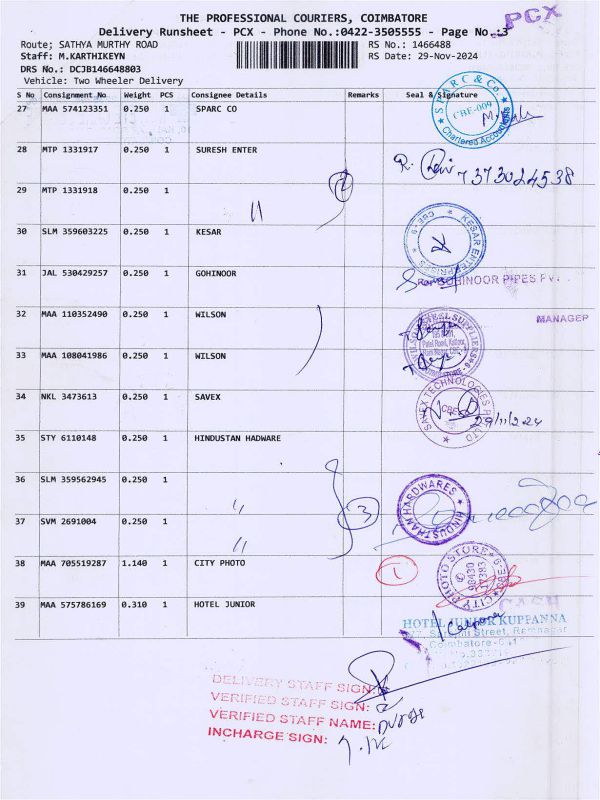 THE PROFESSIONAL COURIERS, COIMBATORE
PCX
Delivery Runsheet - PCX - Phone No.:0422-3505555 - Page No.:3
Route; SATHYA MURTHY ROAD
RS No.: 1466488
Staff: M.KARTHIKEYN
RS Date: 29-Nov-2024
DRS No.: DCJB146648803
Vehicle: Two Wheeler Delivery
S No Consignment No Weight PCS Consignee Details Remarks Seal & Signature
27 MAA 574123351 0.250 1 SPARC CO
SPARC & Co.
CBE-009
Chartered Accountants
28 MTP 1331917 0.250 1 SURESH ENTER
7373024538
29 MTP 1331918 0.250 1 "
2
30 SLM 359603225 0.250 1 KESAR
KESAR ENTERPRISES CBE-9
31 JAL 530429257 0.250 1 GOHINOOR
GOHINOOR PIPES PVT.
32 MAA 110352490 0.250 1 WILSON
MANAGER
33 MAA 108041986 0.250 1 WILSON
34 NKL 3473613 0.250 1 SAVEX
SAVEX TECHNOLOGIES
29/11/24
35 STY 6110148 0.250 1 HINDUSTAN HADWARE
36 SLM 359562945 0.250 1 "
HINDUSTHAN HARDWARES
37 SVM 2691004 0.250 1 "
3
38 MAA 705519287 1.140 1 CITY PHOTO
1
CITY PHOTO STORE CBE-9
98430
39 MAA 575786169 0.310 1 HOTEL JUNIOR
CASH
HOTEL JUNIOR KUPPANNA
Street, Ramnagar
Coimbatore
DELIVERY STAFF SIGN:
VERIFIED STAFF SIGN:
VERIFIED STAFF NAME:
INCHARGE SIGN: